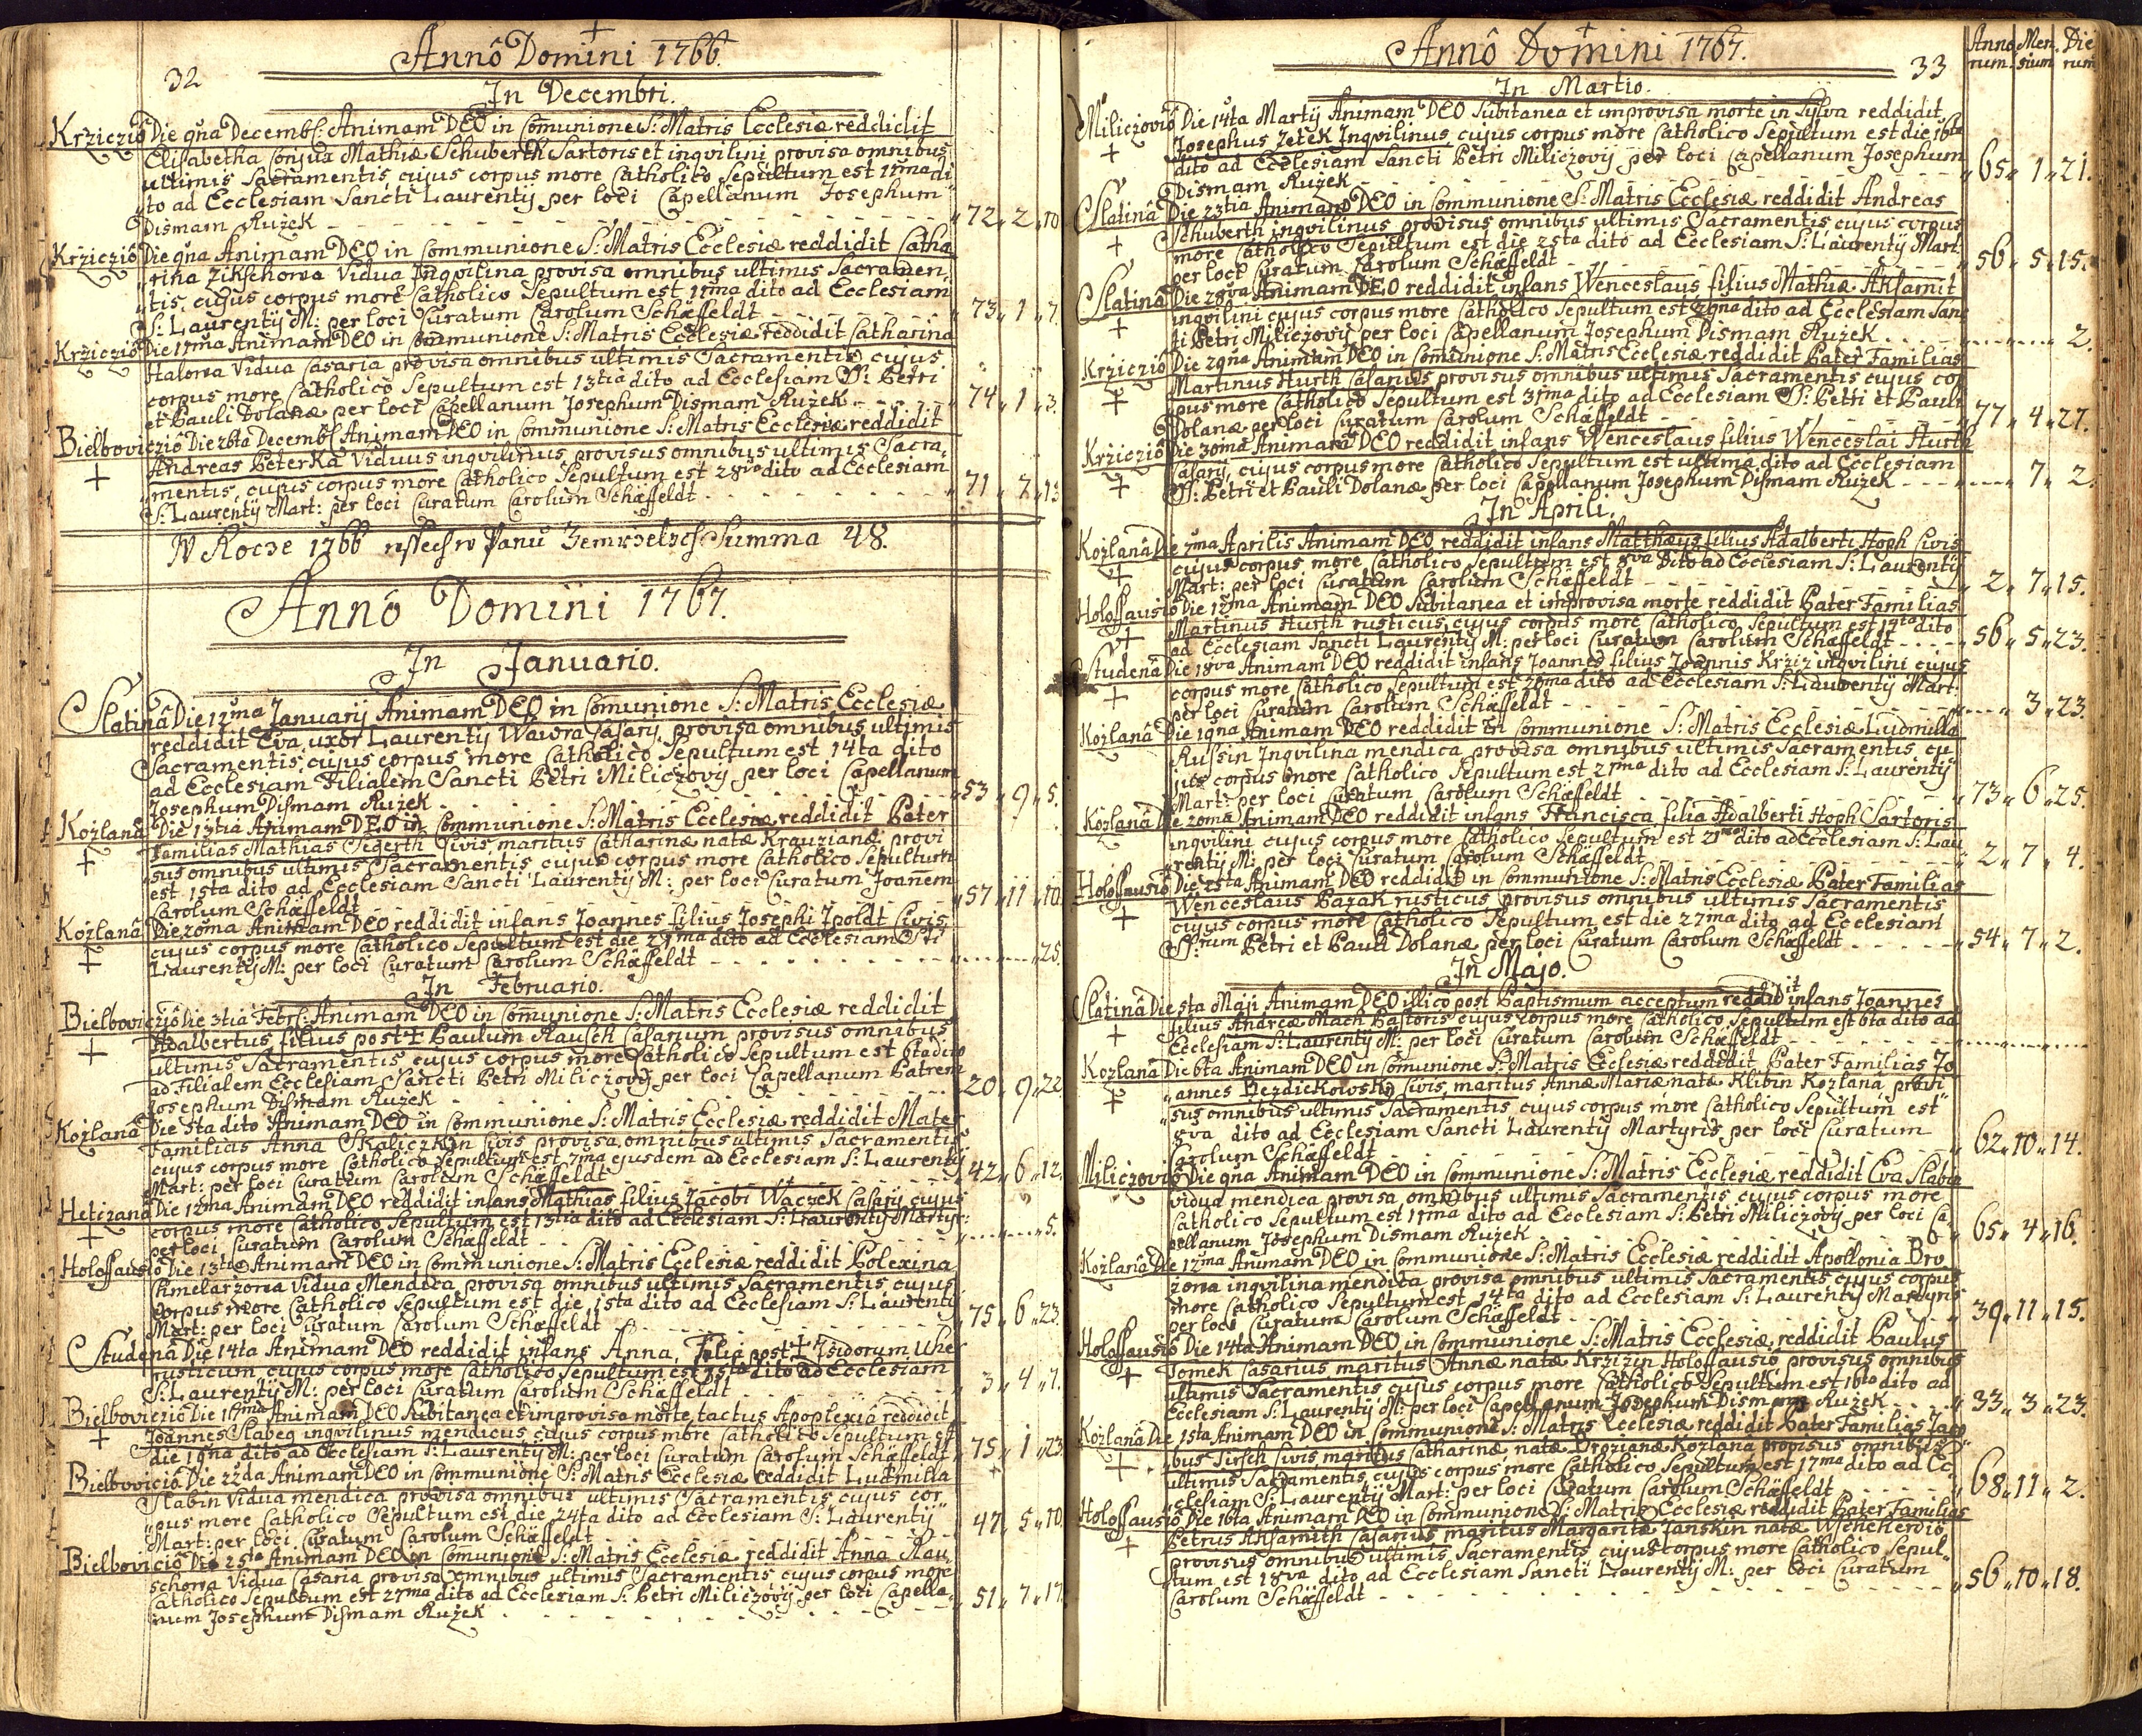 32
Annô Domini 1766.
In Decembri.
Krziczio Die 9na Decemb: Animam DEO in Comunione S: Matris Ecclesiæ reddidit
Elisabetha Conjux Mathiæ Schuberth Sartoris et inqvilini provisa omnibus
ultimis Sacramentis, cujus corpus more Catholico Sepultum est 11ma di
to ad Ecclesiam Sancti Laurentij per loci Capellanum Josephum
Dismam Ružek 72 " 2 " 10
Krziczio Die 9na Animam DEO in Communione S: Matris Ecclesiæ reddidit Catha
rina Zikschowa Vidua Inqvilina provisa omnibus ultimis Sacramen,
tis, cujus corpus more Catholico Sepultum est 11ma dito ad Ecclesiam
S: Laurentij M: per loci Curatum Carolum Schæffeldt 73 " 1 " 7.
Krziczio Die 11ma Animam DEO in Communione S: Matris Ecclesiæ reddidit Catharina
Halowa Vidua Casaria provisa omnibus ultimis Sacramentis cujus
corpus more Catholico Sepultum est 13tia dito ad Ecclesiam S: Petri
et Pauli Dolanæ per loci Capellanum Josephum Dismam Ružek 74 " 1 " 3.
Bielboviczio Die 26ta Decemb: Animam DEO in Communione S: Matris Ecclesiæ reddidit
Andreas Peterka Viduus inqvilinus provisus omnibus ultimis Sacra,
mentis, cujus corpus more Catholico Sepultum est 28va dito ad Ecclesiam
S: Laurentij Mart: per loci Curatum Carolum Schæffeldt 71 " 7 " 13
Summa 48.
Annô Domini 1767.
In Januario.
Slatinâ Die 12ma Januarij Animam DEO in Comunione S: Matris Ecclesiæ
reddidit Eva uxor Laurentij Wawra Casarij, provisa omnibus ultimis
Sacramentis, cujus corpus more Catholico Sepultum est 14ta dito
ad Ecclesiam Filialem Sancti Petri Miliczovij per loci Capellanum
Josephum Dismam Ružek 53 " 9 " 5.
Kozlanâ Die 13tia Animam DEO in Communione S: Matris Ecclesiæ reddidit Pater
Familias Mathias Siegerth Civis maritus Catharinæ natæ Krauzianæ provi
sus omnibus ultimis Sacramentis cujus corpus more Catholico Sepultum
est 15ta dito ad Ecclesiam Sancti Laurentij M: per loci Curatum Joanem
Carolum Schæffeldt 57 " 11 " 10.
Kozlanâ Die 20ma Animam DEO reddidit infans Joannes filius Josephi Ipoldt Civis
cujus corpus more Catholico Sepultum est die 21ma dito ad Ecclesiam Sti
Laurentij M: per loci Curatum Carolum Schæffeldt 25.
In Februario.
Bielboviczio Die 3tia Febr: Animam DEO in Comunione S: Matris Ecclesiæ reddidit
Adalbertus filius post + Paulum Rausch Casarium provisus omnibus
ultimis Sacramentis, cujus corpus more Catholico Sepultum est 6ta dito
ad Filialem Ecclesiam Sancti Petri Miliczovij per loci Capellanum Patrem
Josephum Dismam Ružek 20 " 9 " 22
Kozlanâ Die 5ta dito Animam DEO in Communione S: Matris Ecclesiæ reddidit Mater
Familias Anna Skaliczkin Civis provisa omnibus ultimis Sacramentis
cujus corpus more Catholico Sepultum est 7ma ejusdem ad Ecclesiam S: Laurentij
Mart: per loci Curatum Carolum Schæffeldt 42 " 6 " 12.
Hetizanâ Die 12ma Animam DEO reddidit infans Mathias filius Jacobi Waczek Casarij cujus
corpus more Catholico Sepultum est 13tia dito ad Ecclesiam S: Laurentij Martyr:
per loci Curatum Carolum Schæffeldt 5.
Holoffausio Die 13tia Animam DEO in Communione S: Matris Ecclesiæ reddidit Polexina
Chmelarzowa Vidua Mendica provisa omnibus ultimis Sacramentis, cujus
corpus more Catholico Sepultum est die 15ta dito ad Ecclesiam S: Laurentij
Mart: per loci Curatum Carolum Schæffeldt 75 " 6 " 23.
Studenâ Die 14ta Animam DEO reddidit infans Anna, Filia post + Isidorum Uher
rusticum cujus corpus more Catholico Sepultum est 15ta dito ad Ecclesiam
S: Laurentij M: per loci Curatum Carolum Schæffeldt 3 " 4 " 7.
Bielboviczio Die 17ma Animam DEO Subitanea et improvisa morte, tactus Apoplexiâ reddidit
Joannes Slabey inqvilinus mendicus, cujus corpus more Catholico Sepultum est
die 19na dito ad Ecclesiam S: Laurentij M: per loci Curatum Carolum Schæffeldt 75 " 1 " 23
Bielbovicio Die 22da Animam DEO in Communione S: Matris Ecclesiæ reddidit Ludmilla
Slabin Vidua mendica provisa omnibus ultimis Sacramentis cujus cor
pus more Catholico Sepultum est die 24ta dito ad Ecclesiam S: Laurentij
Mart: per loci Curatum Carolum Schæffeldt 47 " 5 " 10
Bielbovicio Die 25ta Animam DEO in Comunione S: Matris Ecclesiæ reddidit Anna Rau
schowa Vidua Casaria provisa omnibus ultimis Sacramentis cujus corpus more
Catholico Sepultum est 27ma dito ad Ecclesiam S: Petri Miliczovij per loci Capella
num Josephum Dismam Ružek 51 " 7 " 17.
Annô Domini 1767.
33
Anno Men. Die
rum. sium rum
In Martio.
Miliczovio Die 14ta Martij Animam DEO Subitanea et improvisa morte in Sylva reddidit
Josephus Zetek Inqvilinus, cujus corpus more Catholico Sepultum est die 16ta
dito ad Ecclesiam Sancti Petri Miliczovij per loci Capellanum Josephum
Dismam Ružek 65 " 1 " 21.
Slatinâ Die 23tia Animam DEO in Communione S: Matris Ecclesiæ reddidit Andreas
Schuberth inqvilinus provisus omnibus ultimis Sacramentis, cujus corpus
more Catholico Sepultum est die 25ta dito ad Ecclesiam S: Laurentij Mart:
per loci Curatum Carolum Schæffeldt 56 " 5 " 15.
Slatinâ Die 28va Animam DEO reddidit infans Wenceslaus filius Mathiæ Aksamit
inqvilini cujus corpus more Catholico Sepultum est 29na dito ad Ecclesiam Sanc
ti Petri Miliczovij per loci Capellanum Josephum Dismam Ružek 2.
Krziczio Die 29na Animam DEO in Comunione S: Matris Ecclesiæ reddidit Pater Familias
Martinus Hurth Casarius provisus omnibus ultimis Sacramentis cujus cor
pus more Catholico Sepultum est 31ma dito ad Ecclesiam S: Petri et Pauli
Dolanæ per loci Curatum Carolum Schæffeldt 77 " 4 " 27.
Krziczio Die 30ma Animam DEO reddidit infans Wenceslaus filius Wenceslai Hurth
Casarij, cujus corpus more Catholico Sepultum est ultima dito ad Ecclesiam
SS: Petri et Pauli Dolanæ per loci Capellanum Josephum Dismam Ružek 7 " 2.
In Aprili.
Kozlanâ Die 7ma Aprilis Animam DEO reddidit infans Matthæus filius Adalberti Hoph Civis
cujus corpus more Catholico Sepultum est 8va dito ad Ecclesiam S: Laurentij
Mart: per loci Curatum Carolum Schæffeldt 2 " 7 " 15.
Holoffausio Die 12ma Animam DEO Subitanea et improvisa morte reddidit Pater Familias
Martinus Hurth rusticus, cujus corpus more Catholico Sepultum est 15ta dito
ad Ecclesiam Sancti Laurentij M: per loci Curatum Carolum Schæffeldt 56 " 5 " 23.
Studenâ Die 18va Animam DEO reddidit infans Joannes filius Joannis Krziz inqvilini cujus
corpus more Catholico Sepultum est 20ma dito ad Ecclesiam S: Laurentij Mart:
per loci Curatum Carolum Schæffeldt 3 " 23.
Kozlanâ Die 19na Animam DEO reddidit in Communione S: Matris Ecclesiæ Ludmilla
Russin Inqvilina mendica provisa omnibus ultimis Sacramentis cu
jus corpus more Catholico Sepultum est 21ma dito ad Ecclesiam S: Laurentij
Mart: per loci Curatum Carolum Schæffeldt 73 " 6 " 25.
Kozlanâ Die 20ma Animam DEO reddidit infans Francisca filia Adalberti Hoph Sartoris
inqvilini cujus corpus more Catholico Sepultum est 21ma dito ad Ecclesiam S: Lau
rentij M: per loci Curatum Carolum Schæffeldt 2 " 7 " 4.
Holoffausio Die 25ta Animam DEO reddidit in Communione S: Matris Ecclesiæ Pater Familias
Wenceslaus Pazak rusticus provisus omnibus ultimis Sacramentis
cujus corpus more Catholico Sepultum est die 27ma dito ad Ecclesiam
SS:rum Petri et Pauli Dolanæ per loci Curatum Carolum Schæffeldt 54 " 7 " 2.
In Majo.
Slatinâ Die 5ta Maji Animam DEO illico post Baptismum acceptum reddidit infans Joannes
filius Andreæ Mach Pastoris cujus corpus more Catholico Sepultum est 6ta dito ad
Ecclesiam S: Laurentij M: per loci Curatum Carolum Schæffeldt
Kozlanâ Die 6ta Animam DEO in Comunione S: Matris Ecclesiæ reddidit Pater Familias Jo
annes Bezdiekowsky Civis, maritus Annæ Mariæ natæ Klibin Kozlana provi
sus omnibus ultimis Sacramentis cujus corpus more Catholico Sepultum est
8va dito ad Ecclesiam Sancti Laurentij Martyris per loci Curatum
Carolum Schæffeldt 62 " 10 " 14.
Miliczovio Die 9na Animam DEO in Communione S: Matris Ecclesiæ reddidit Eva Slabin
vidua mendica provisa omnibus ultimis Sacramentis cujus corpus more
Catholico Sepultum est 11ma dito ad Ecclesiam S: Petri Miliczovij per loci Ca
pellanum Josephum Dismam Ružek 65 " 4 " 16.
Kozlanâ Die 12ma Animam DEO in Communione S: Matris Ecclesiæ reddidit Apollonia Bro
zowa inqvilina mendica provisa omnibus ultimis Sacramentis cujus corpus
more Catholico Sepultum est 14ta dito ad Ecclesiam S: Laurentij Martyris
per loci Curatum Carolum Schæffeldt 39 " 11 " 15.
Holoffausio Die 14ta Animam DEO in Communione S: Matris Ecclesiæ reddidit Paulus
Tomek Casarius maritus Annæ natæ Krzizin Holoffausio provisus omnibus
ultimis Sacramentis cujus corpus more Catholico Sepultum est 16ta dito ad
Ecclesiam S: Laurentij M: per loci Capellanum Josephum Dismam Ružek 33 " 3 " 23.
Kozlanâ Die 15ta Animam DEO in Communione S: Matris Ecclesiæ reddidit Pater Familias Jaco
bus Tirsch Civis maritus Catharinæ natæ Brozianæ Kozlana provisus omnibus
ultimis Sacramentis, cujus corpus more Catholico Sepultum est 17ma dito ad Ec
clesiam S: Laurentij Mart: per loci Curatum Carolum Schæffeldt 68 " 11 " 2.
Holoffausio Die 16ta Animam DEO in Communione S: Matris Ecclesiæ reddidit Pater Familias
Petrus Ahsamith Casarius maritus Margaritæ Janskin natæ Wscheherdio
provisus omnibus ultimis Sacramentis cujus corpus more Catholico Sepul
tum est 18va dito ad Ecclesiam Sancti Laurentij M: per loci Curatum
Carolum Schæffeldt 56 " 10 " 18.